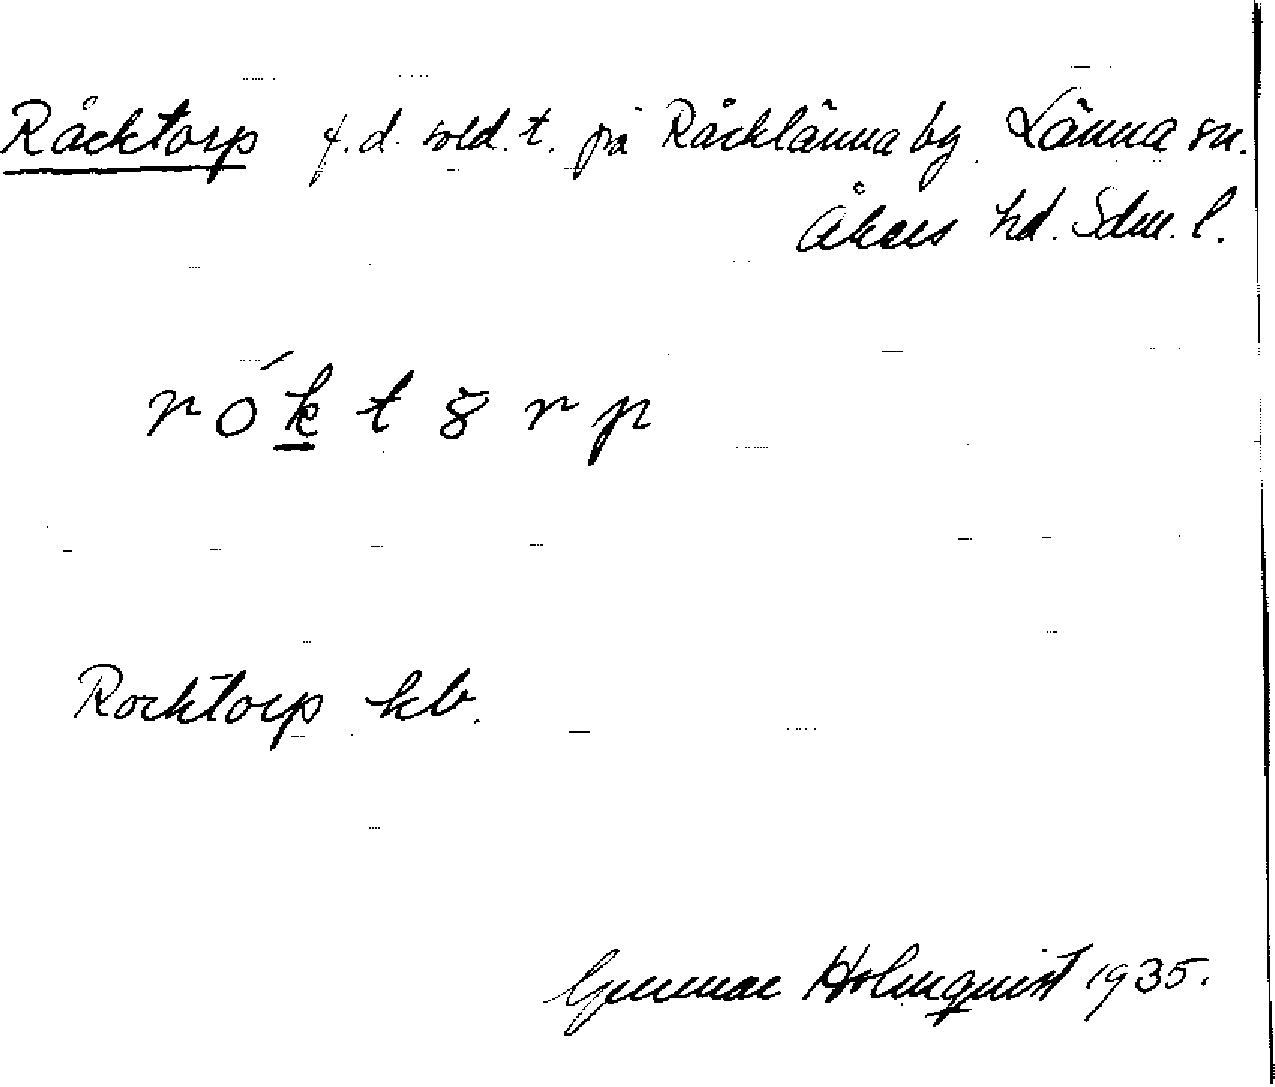 Råcktorp f.d. sold. t. på Råcklänna by. Länna sn.
Åkers hd. Sdm. l.
rók̲tŏrp
Rocktorp kb.
Gunnar Holmquist 1935.